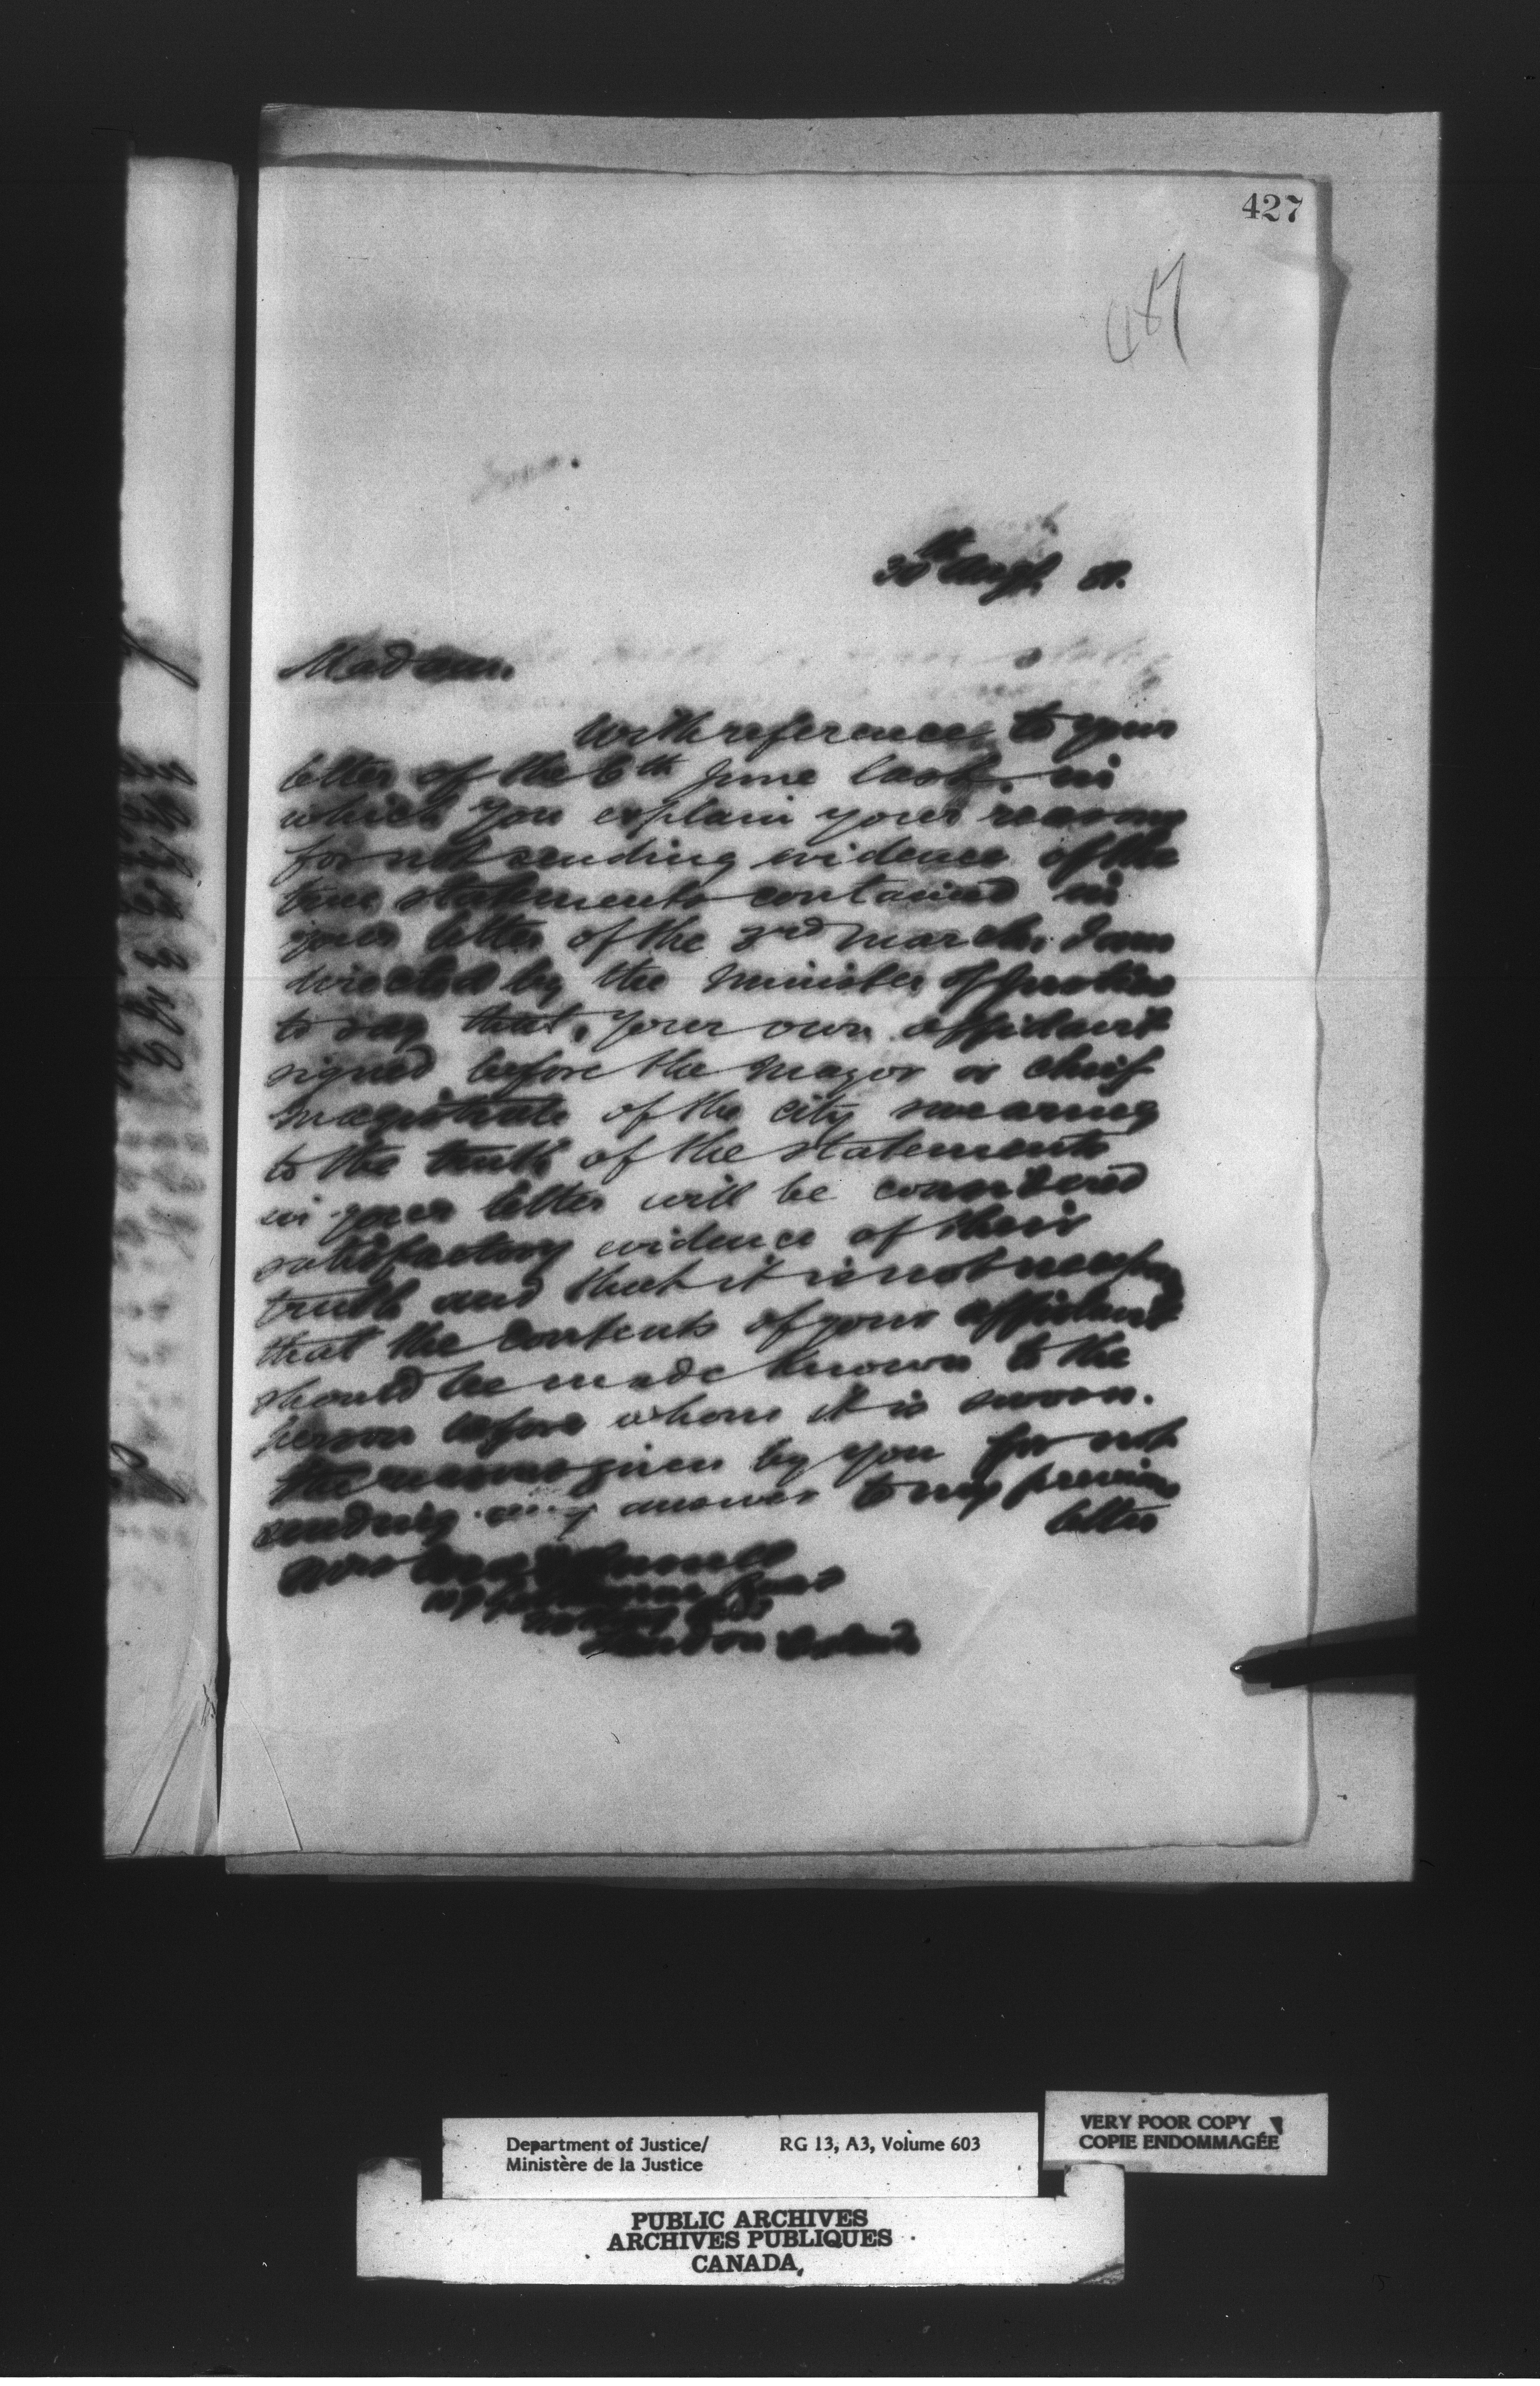 427
487
30th Augt. 81.
Madam.
With reference to your
letter of the 6th June last, in
which you explain your reasons
for not sending evidence of the
true statements contained in
your letter of the 3rd March, I am
directed by the Minister of Justice
to say that, your own affidavit
signed before the Mayor or chief
magistrate of the city swearing
to the truth of the statements
in your letter will be considered
satisfactory evidence of their
truth and that it is not necessary
that the contents of your affidavit
should be made known to the
person before whom it is sworn.
the reasons given by you for not
sending any answer to my previous
letter
Mrs
London
Department of Justice/
Ministère de la Justice
RG 13, A3, Volume 603
VERY POOR COPY
COPIE ENDOMMAGÉE
PUBLIC ARCHIVES
ARCHIVES PUBLIQUES
CANADA